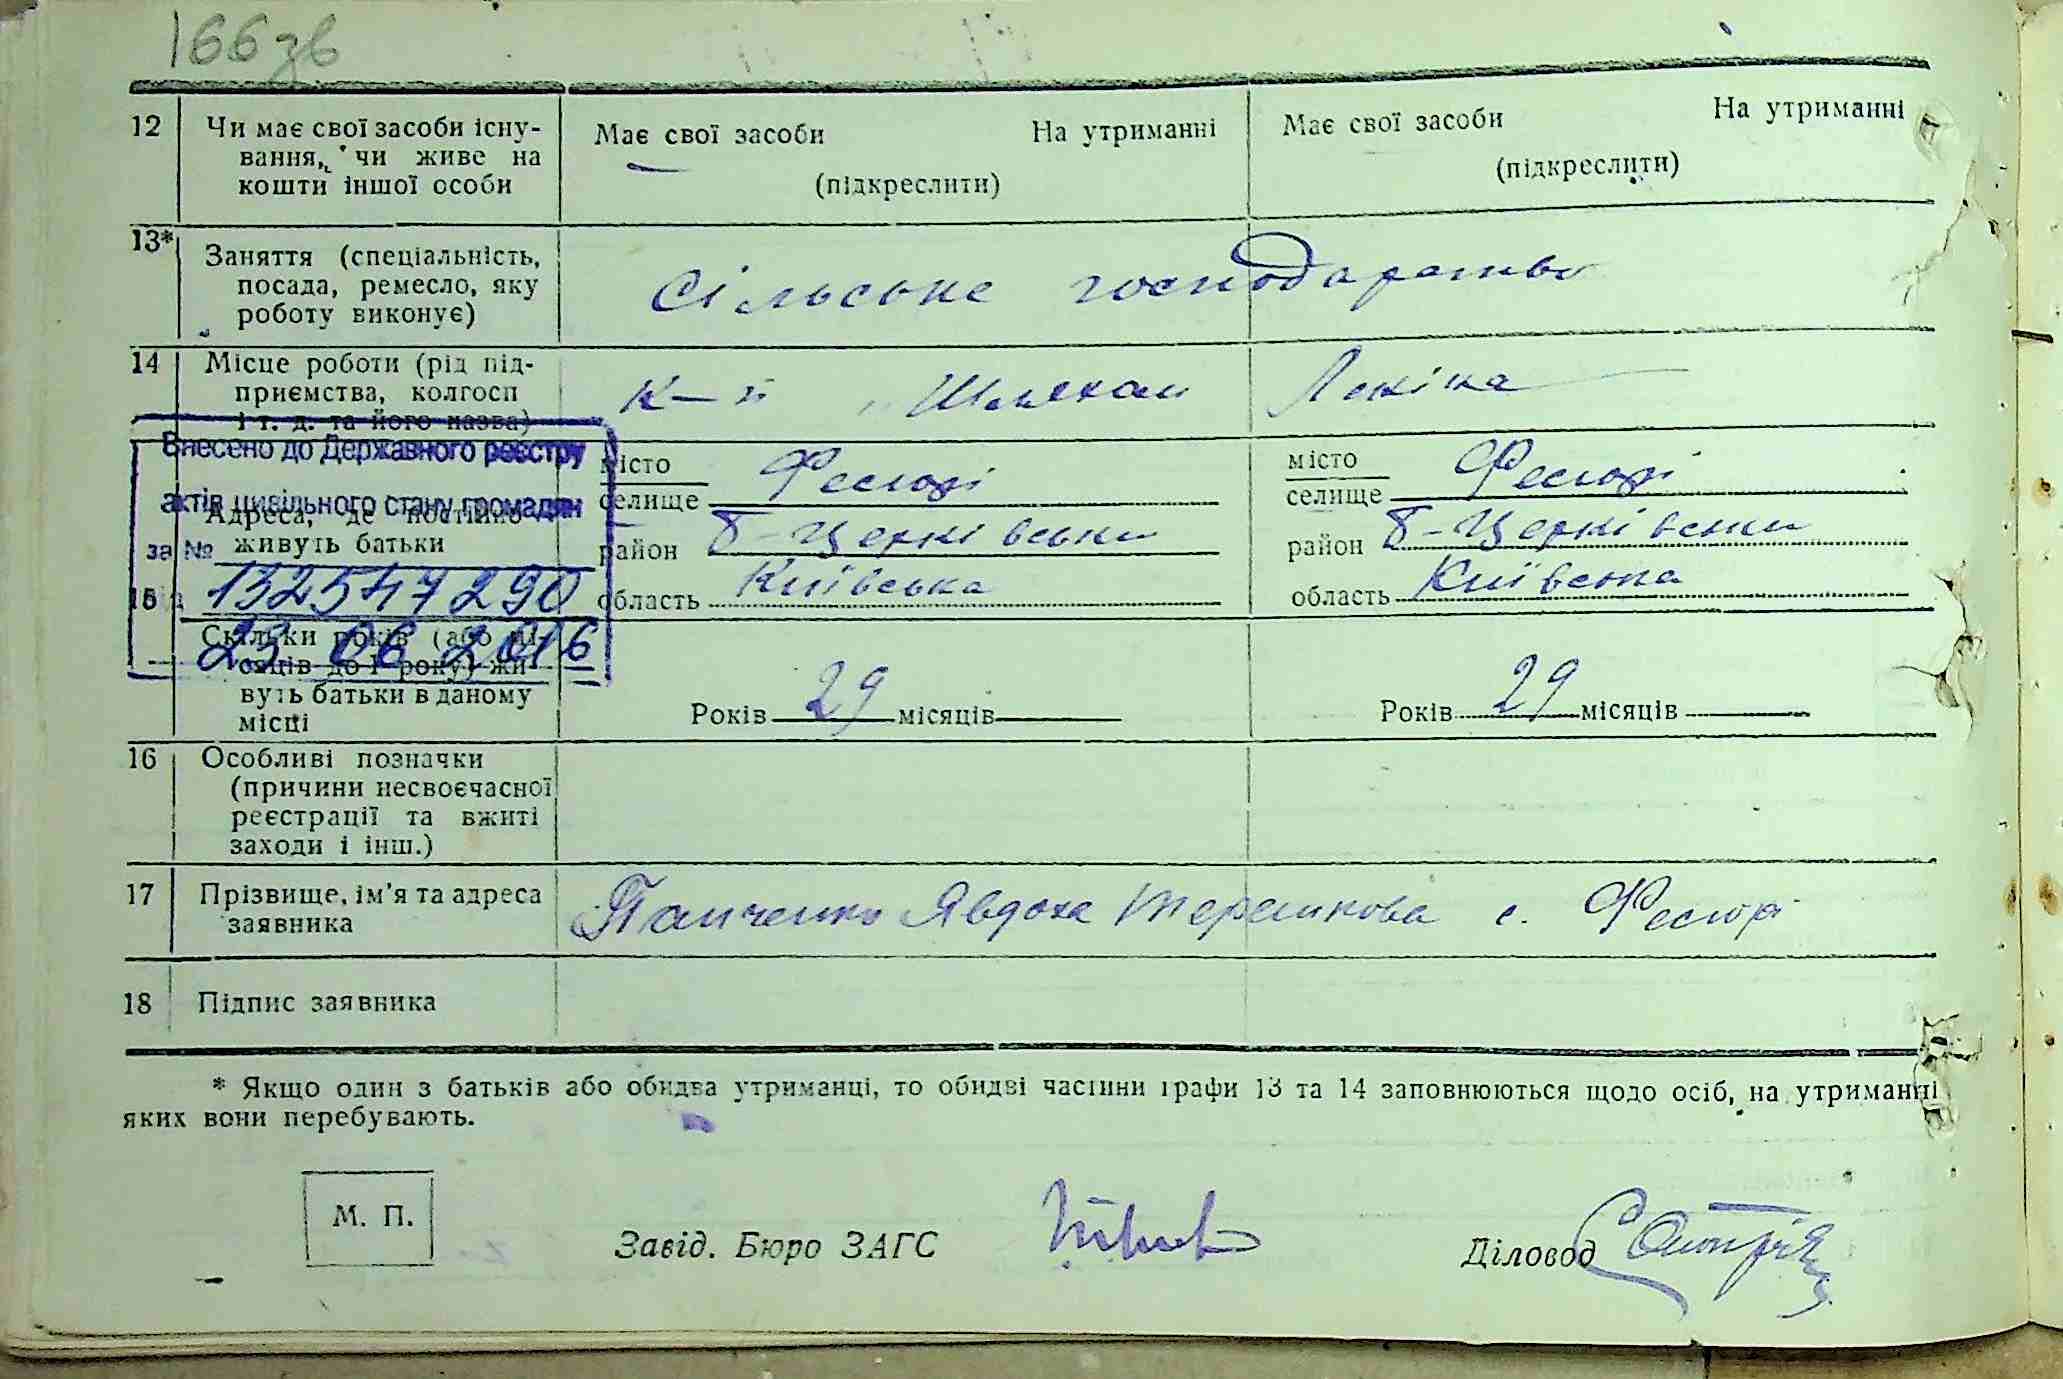 166 зв
12 Чи має свої засоби існу- Має свої засоби На утриманні Має свої засоби На утриманні
вання, чи живе на
кошти іншої особи (підкреслити) (підкреслити)
13* Заняття (спеціальність,
посада, ремесло, яку Сільське господарство
роботу виконує)
14 Місце роботи (рід під-
приємства, колгосп К-п „Шляхом Леніна
і т. д. та його назва)
Внесено до Державного реєстру
актів цивільного стану громадян
за №
132547290
23 06 2016
15 Адреса, де постійно
живуть батьки
місто селище Фесюрі місто селище Фесюрі
район Б-Церківськи район Б-Церківськи
область Київська область Київська
Скільки років (або мі-
сяців до 1 року) жи-
вуть батьки в даному Років 29 місяців Років 29 місяців
місці
16 Особливі позначки
(причини несвоєчасної
реєстрації та вжиті
заходи і інш.)
17 Прізвище, ім'я та адреса Панченко Явдоха Терешкова с. Фесюрі
заявника
18 Підпис заявника
* Якщо один з батьків або обидва утриманці, то обидві частини графи 13 та 14 заповнюються щодо осіб, на утриманні
яких вони перебувають.
М. П.
Завід. Бюро ЗАГС Діловод